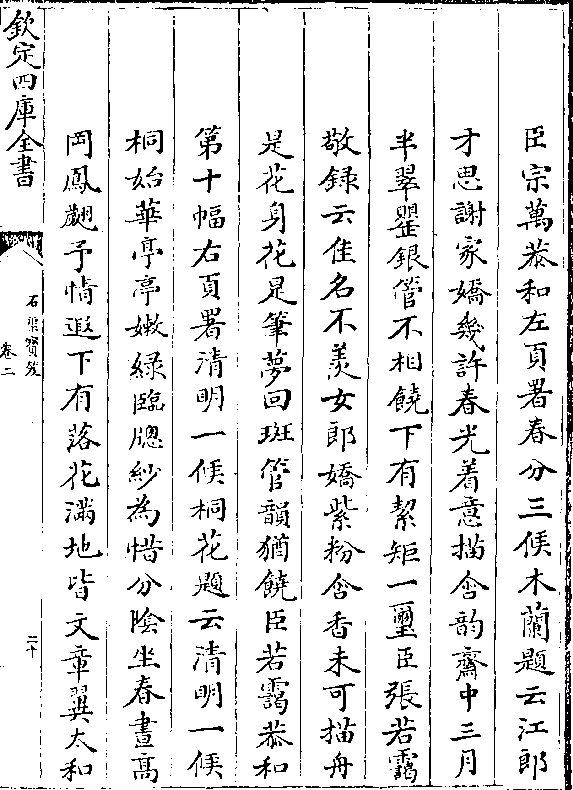 臣宗萬恭和左頁署春分三候木蘭題云江郎
才思謝家嬌幾許春光着意描含韵齋中三月
半翠罌銀管不相饒下有絜矩一璽臣張若靄
敬録云佳名不羨女郎嬌紫粉含香未可描舟
是花身花是筆夢回斑管韻猶饒臣若靄恭和
第十幅右頁署清明一候桐花題云清明一候
桐始華亭亭嫩緑臨牕紗為惜分陰坐春晝高
岡鳳翽予情遐下有落花滿地皆文章翼太和
欽定四庫全書
石渠寳笈
卷二
二十